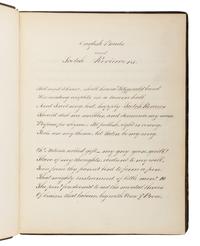 English Bards
and
Scotch Reviewers.
Still must I hear? shall hoarse Fitzgerald bawl
His creaking couplets in a tavern hall
And I not sing, lest, haply, Scotch Reviews
Should dub me scribbler, and denounce my muse
Prepare for rhyme. I'll publish, right or wrong:
Fools are my theme, let Satire be my song
Oh! Nature's noblest gift, my grey goose quill!
Slave of my thoughts, obedient to my will,
Torn from thy parent bird to form a pen,
That mighty instrument of little men!
The pen! foredoomed to aid the mental throes
Of brains that labour, big with Verse or Prose.